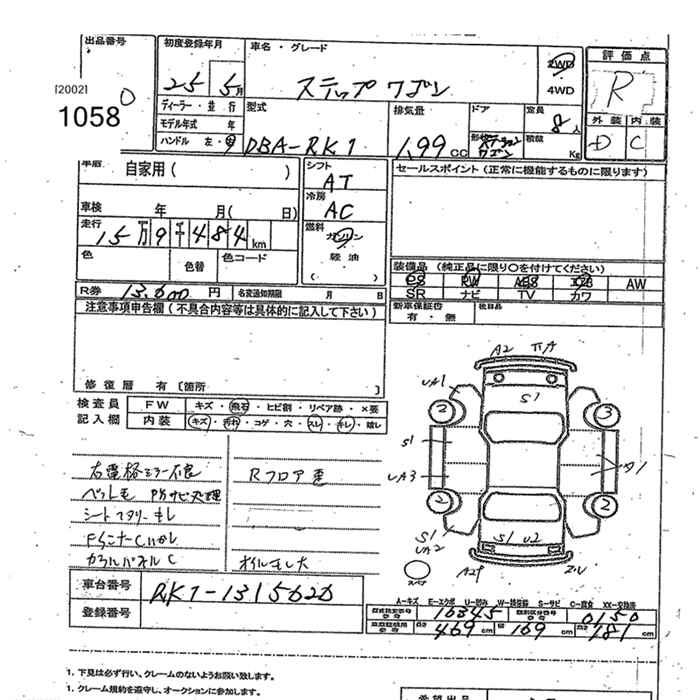 出品番号
[2002]
1058
初度登録年月
25 5月
車名・グレード
ステップワゴン
2WD
4WD
評価点
R
外装 内装
D C
ディーラー・並行
モデル年式 年
ハンドル 左・右
型式
DBA-RK1
排気量
1.99 cc
ドア
定員
8人
積載
Kg
車歴
自家用( )
車検 年 月( 日)
走行
15万9千484km
色
色替
色コード
シフト
AT
冷房
AC
燃料
ガソリン
軽油
( )
セールスポイント(正常に機能するものに限ります)
装備品(純正品に限り○を付けてください)
PS PW ABS エアB AW
SR ナビ TV カワ
新車保証書
有・無
後日品
R券 13,600円
名変通知期限 月 日
注意事項申告欄(不具合内容等は具体的に記入して下さい)
修復歴 有〔箇所 〕
検査員
記入欄
FW キズ・飛石・ヒビ割・リペア跡・×要
内装 キズ・汚れ・コゲ・穴・スレ・キレ・破レ
右電格ミラー不良
Rフロア歪
シートスタリーキレ
カウルパネルC
A2 S1 UA1
S1 UA3
S1 UA2
S1 U2
2 3 2 2
スペア
車台番号
RK1-1315020
登録番号
A-キズ E-エクボ U-凹み W-補修跡 S-サビ C-腐食 XX-交換済
型式指定番号 16345 類別区分番号 0150
長さ 469cm 幅 169cm 高さ 181cm
1. 下見は必ず行い、クレームのないようお願い致します。
1. クレーム規約を遵守し、オークションに参加します。
希望出品